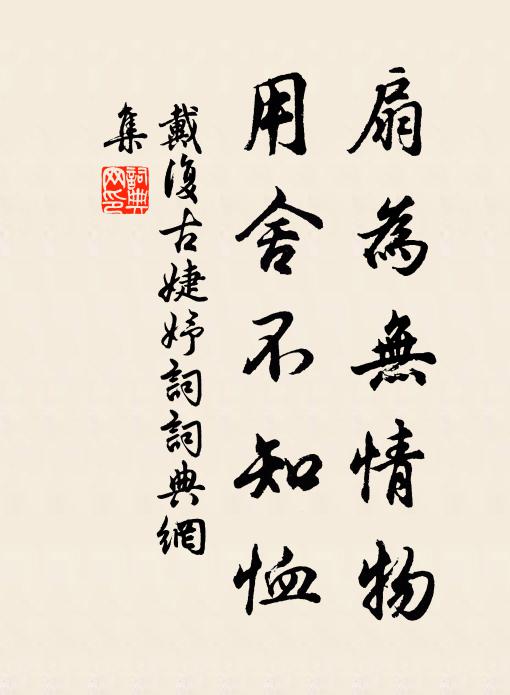 扇為無情物
用舍不知恤
戴復古婕妤詞詞典網
集
詞典
網印